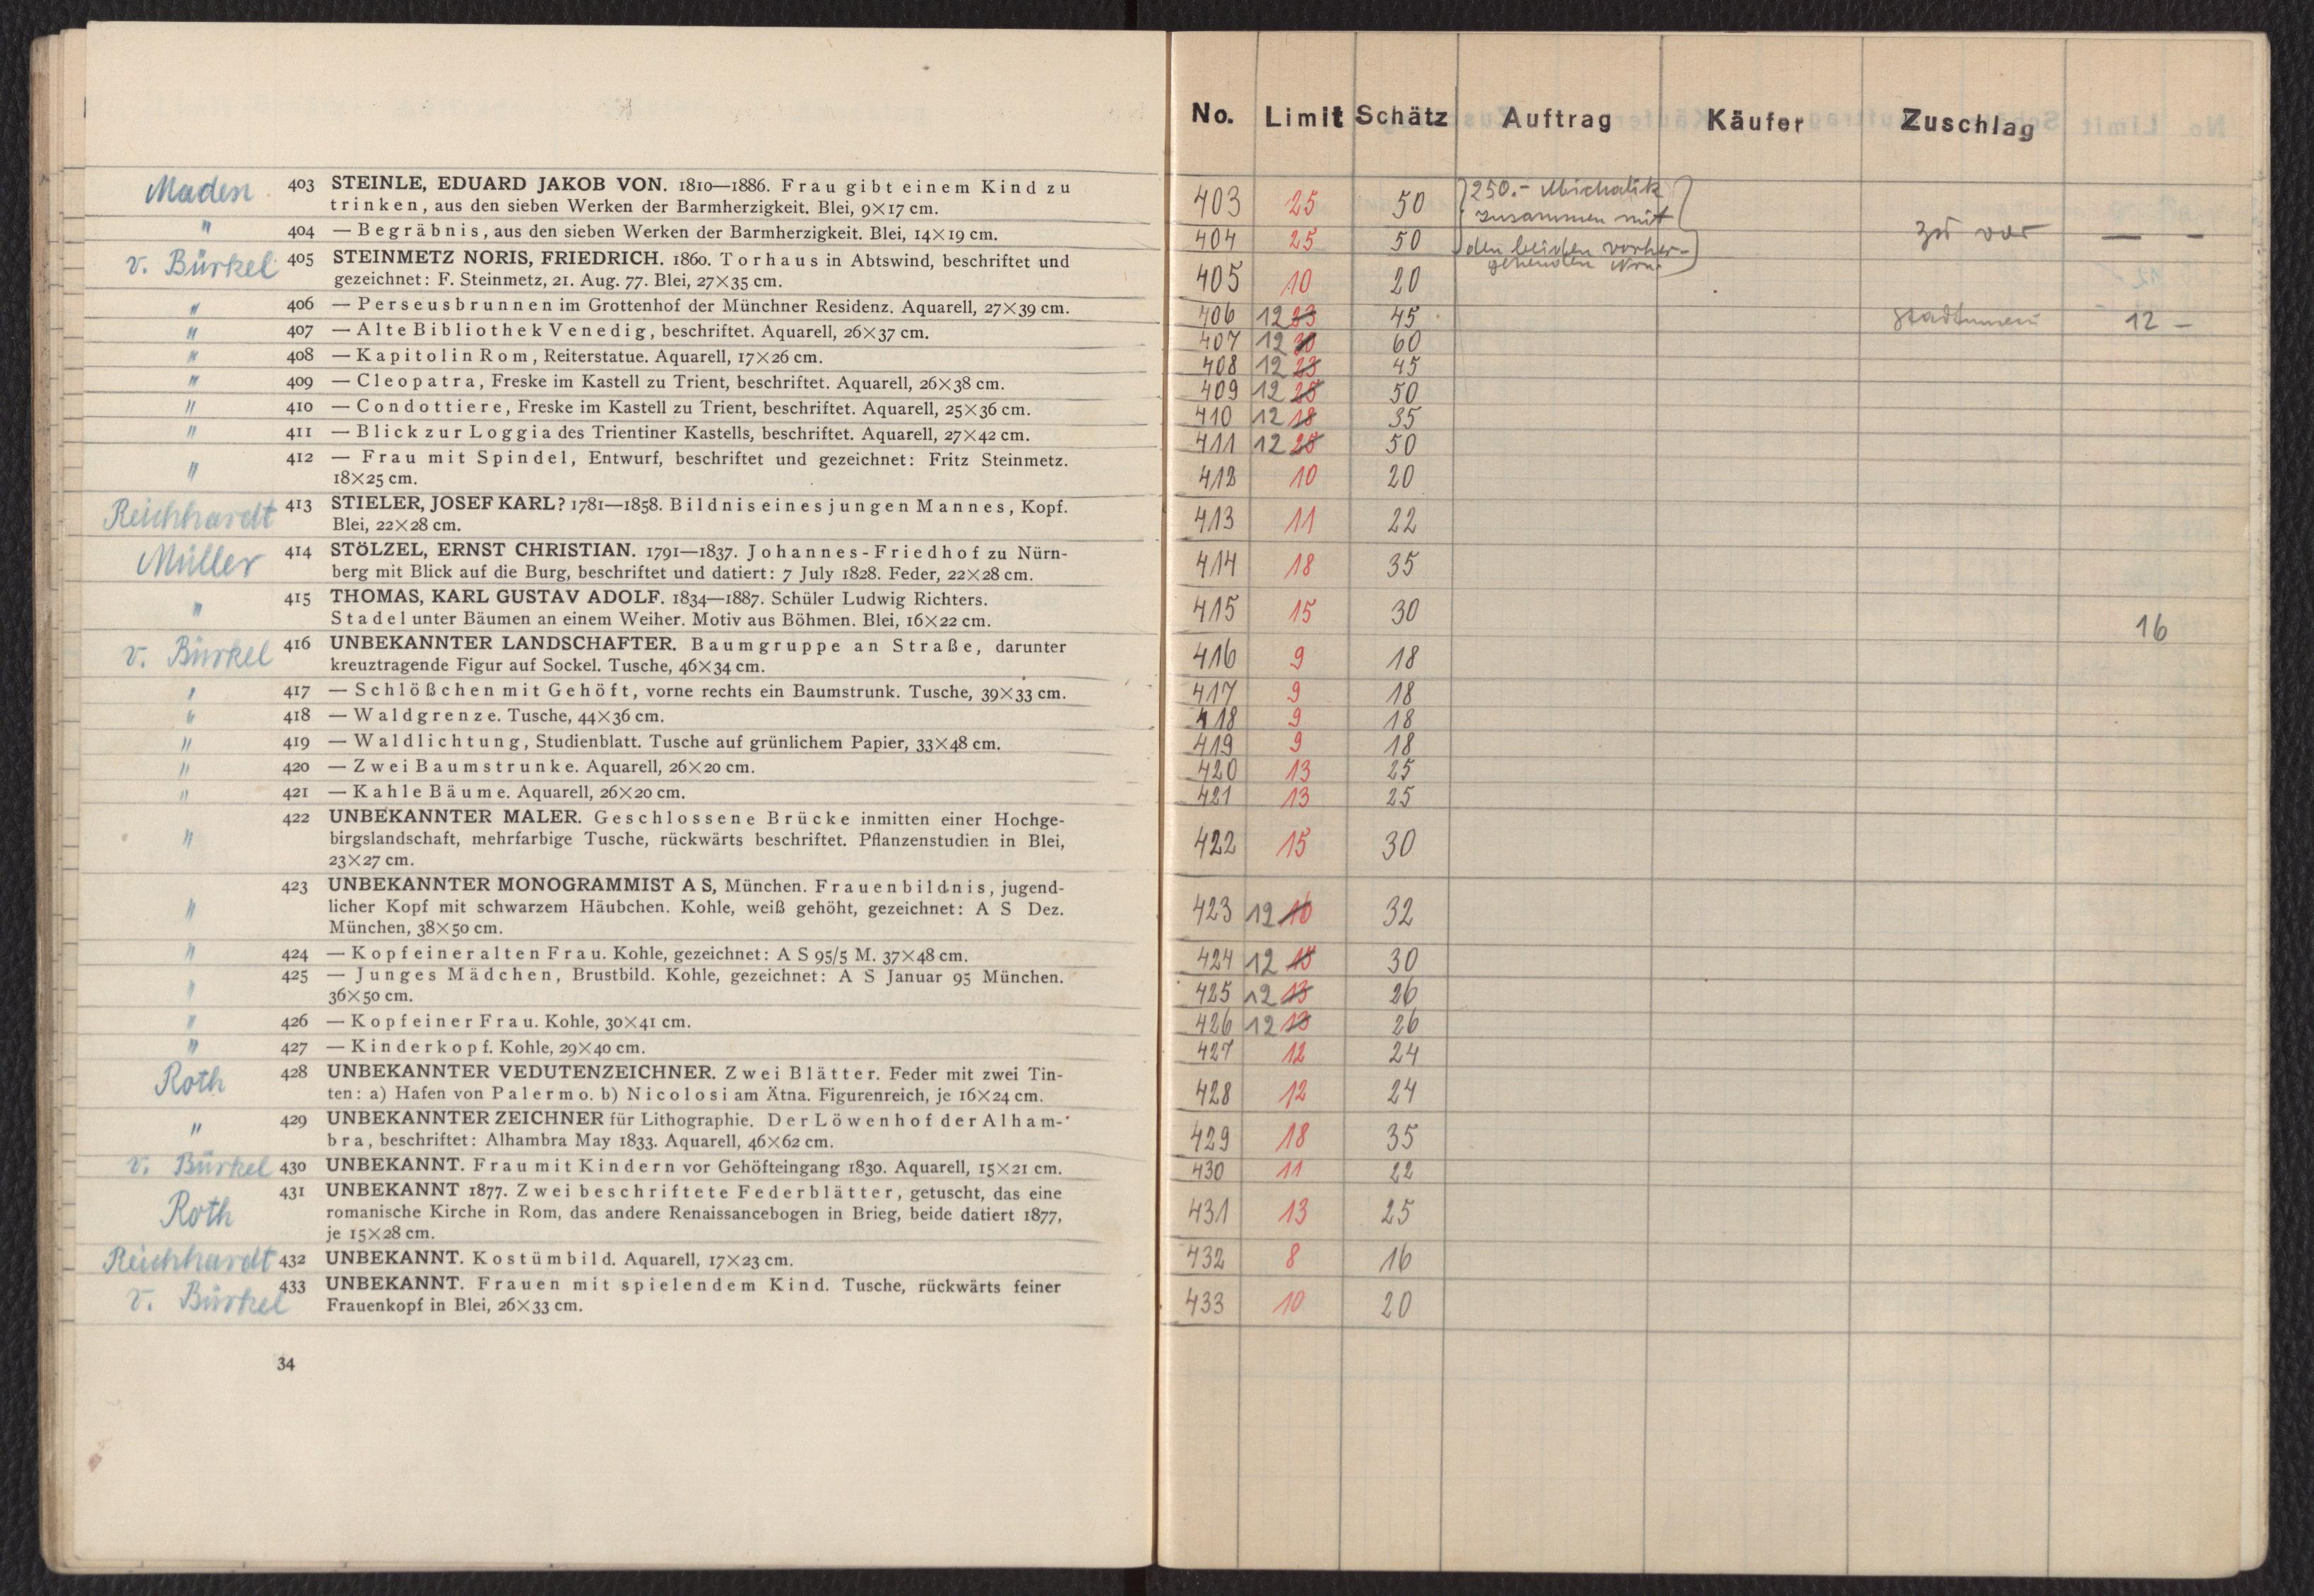 Maden 403 STEINLE, EDUARD JAKOB VON. 1810—1886. Frau gibt einem Kind zu
trinken, aus den sieben Werken der Barmherzigkeit. Blei, 9×17 cm.
" 404 — Begräbnis, aus den sieben Werken der Barmherzigkeit. Blei, 14×19 cm.
v. Bürkel 405 STEINMETZ NORIS, FRIEDRICH. 1860. Torhaus in Abtswind, beschriftet und
gezeichnet: F. Steinmetz, 21. Aug. 77. Blei, 27×35 cm.
" 406 — Perseusbrunnen im Grottenhof der Münchner Residenz. Aquarell, 27×39 cm.
" 407 — Alte Bibliothek Venedig, beschriftet. Aquarell, 26×37 cm.
" 408 — Kapitolin Rom, Reiterstatue. Aquarell, 17×26 cm.
" 409 — Cleopatra, Freske im Kastell zu Trient, beschriftet. Aquarell, 26×38 cm.
" 410 — Condottiere, Freske im Kastell zu Trient, beschriftet. Aquarell, 25×36 cm.
" 411 — Blick zur Loggia des Trientiner Kastells, beschriftet. Aquarell, 27×42 cm.
" 412 — Frau mit Spindel, Entwurf, beschriftet und gezeichnet: Fritz Steinmetz.
18×25 cm.
Reichhardt 413 STIELER, JOSEF KARL? 1781—1858. Bildnis eines jungen Mannes, Kopf.
Blei, 22×28 cm.
Müller 414 STÖLZEL, ERNST CHRISTIAN. 1791—1837. Johannes-Friedhof zu Nürn-
berg mit Blick auf die Burg, beschriftet und datiert: 7 July 1828. Feder, 22×28 cm.
" 415 THOMAS, KARL GUSTAV ADOLF. 1834—1887. Schüler Ludwig Richters.
Stadel unter Bäumen an einem Weiher. Motiv aus Böhmen. Blei, 16×22 cm.
v. Bürkel 416 UNBEKANNTER LANDSCHAFTER. Baumgruppe an Straße, darunter
kreuztragende Figur auf Sockel. Tusche, 46×34 cm.
" 417 — Schlößchen mit Gehöft, vorne rechts ein Baumstrunk. Tusche, 39×33 cm.
" 418 — Waldgrenze. Tusche, 44×36 cm.
" 419 — Waldlichtung, Studienblatt. Tusche auf grünlichem Papier, 33×48 cm.
" 420 — Zwei Baumstrunke. Aquarell, 26×20 cm.
" 421 — Kahle Bäume. Aquarell, 26×20 cm.
422 UNBEKANNTER MALER. Geschlossene Brücke inmitten einer Hochge-
" birgslandschaft, mehrfarbige Tusche, rückwärts beschriftet. Pflanzenstudien in Blei,
23×27 cm.
423 UNBEKANNTER MONOGRAMMIST A S, München. Frauenbildnis, jugend-
" licher Kopf mit schwarzem Häubchen. Kohle, weiß gehöht, gezeichnet: A S Dez.
München, 38×50 cm.
" 424 — Kopf einer alten Frau. Kohle, gezeichnet: A S 95/5 M. 37×48 cm.
" 425 — Junges Mädchen, Brustbild. Kohle, gezeichnet: A S Januar 95 München.
36×50 cm.
" 426 — Kopf einer Frau. Kohle, 30×41 cm.
" 427 — Kinderkopf. Kohle, 29×40 cm.
Roth 428 UNBEKANNTER VEDUTENZEICHNER. Zwei Blätter. Feder mit zwei Tin-
ten: a) Hafen von Palermo. b) Nicolosi am Ätna. Figurenreich, je 16×24 cm.
" 429 UNBEKANNTER ZEICHNER für Lithographie. Der Löwenhof der Alham-
bra, beschriftet: Alhambra May 1833. Aquarell, 46×62 cm.
v. Bürkel 430 UNBEKANNT. Frau mit Kindern vor Gehöfteingang 1830. Aquarell, 15×21 cm.
431 UNBEKANNT 1877. Zwei beschriftete Federblätter, getuscht, das eine
Roth romanische Kirche in Rom, das andere Renaissancebogen in Brieg, beide datiert 1877,
je 15×28 cm.
Reichhardt 432 UNBEKANNT. Kostümbild. Aquarell, 17×23 cm.
v. Bürkel 433 UNBEKANNT. Frauen mit spielendem Kind. Tusche, rückwärts feiner
Frauenkopf in Blei, 26×33 cm.
34
No. Limit Schätz Auftrag Käufer Zuschlag
403 25 50 250.- Michalik
zusammen mit
404 25 50 den beiden vorher- zu vor — -
gehenden Nrn.
405 10 20
406 12 23 45 12 —
407 12 30 60
408 12 23 45
409 12 25 50
410 12 18 35
411 12 25 50
412 10 20
413 11 22
414 18 35
415 15 30 16
416 9 18
417 9 18
418 9 18
419 9 18
420 13 25
421 13 25
422 15 30
423 12 16 32
424 12 15 30
425 12 13 26
426 12 13 26
427 12 24
428 12 24
429 18 35
430 11 22
431 13 25
432 8 16
433 10 20